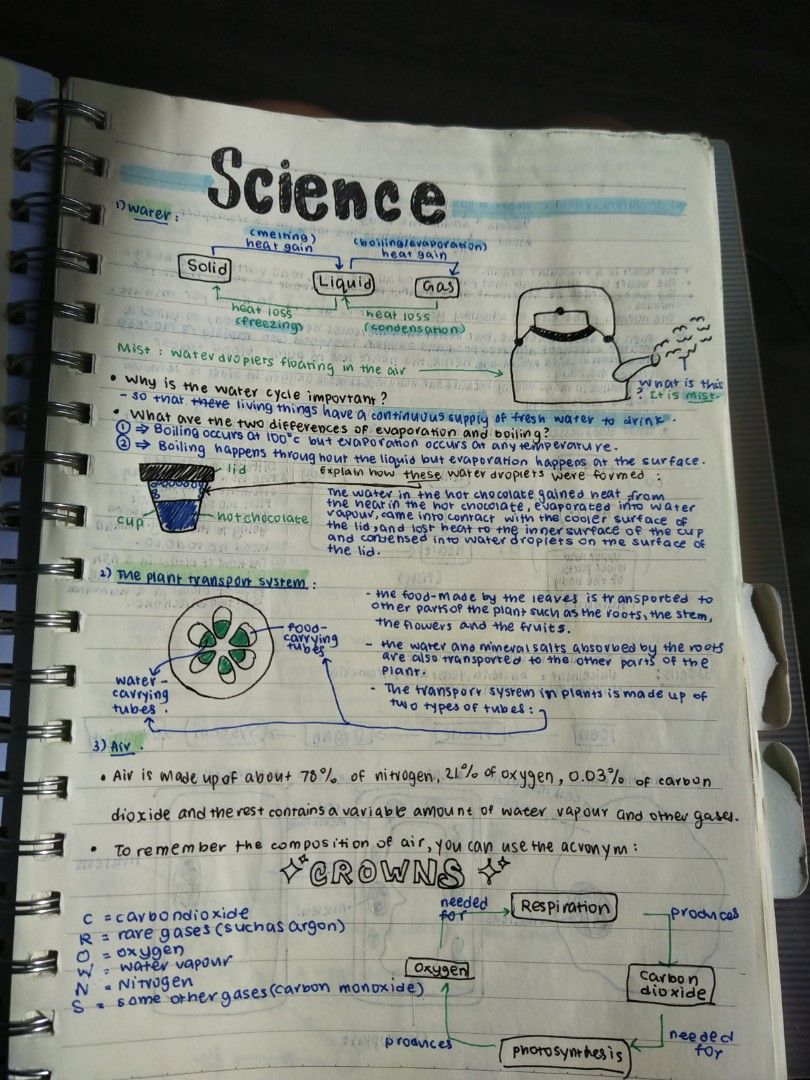 Science
1) Water :
(melting)
heat gain
(boiling/evaporation)
heat gain
Solid
Liquid
Gas
heat loss
(freezing)
heat loss
(condensation)
Mist : water droplets floating in the air
What is this
? It is mist.
• Why is the water cycle important ?
- so that there living things have a continuous supply of fresh water to drink .
• What are the two differences of evaporation and boiling?
① ⇒ Boiling occurs at 100°c but evaporation occurs at any temperature.
② ⇒ Boiling happens throughout the liquid but evaporation happens at the surface.
lid
cup
hot chocolate
Explain how these water droplets were formed :
The water in the hot chocolate gained heat from
the heat in the hot chocolate, evaporated into water
vapour, came into contact with the cooler surface of
the lid, and lost heat to the inner surface of the cup
and condensed into water droplets on the surface of
the lid.
2) The plant transport system :
food-
carrying
tubes
water-
carrying
tubes.
- the food-made by the leaves is transported to
other parts of the plant such as the roots, the stem,
the flowers and the fruits.
- the water and mineral salts absorbed by the roots
are also transported to the other parts of the
plant.
- The transport system in plants is made up of
two types of tubes :
3) Air .
• Air is made up of about 78% of nitrogen, 21% of oxygen, 0.03% of carbon
dioxide and the rest contains a variable amount of water vapour and other gases.
• To remember the composition of air, you can use the acronym :
CROWNS
C = carbondioxide
R = rare gases (such as argon)
O = oxygen
W = water vapour
N = Nitrogen
S = some other gases (carbon monoxide)
needed
for
Respiration
produces
Oxygen
Carbon
dioxide
produces
photosynthesis
needed
for